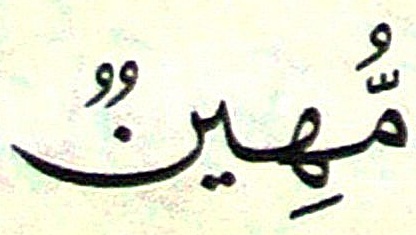 مُّهِينٌ